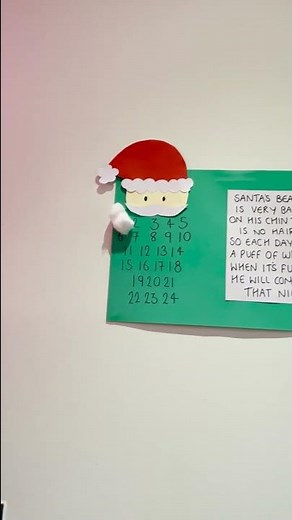 2 3 4 5
6 7 8 9 10
11 12 13 14
15 16 17 18
19 20 21
22 23 24
SANTA'S
IS VERY
ON HIS CHIN
IS NO
SO EACH DAY
A PUFF OF
WHEN ITS
HE WILL
THAT